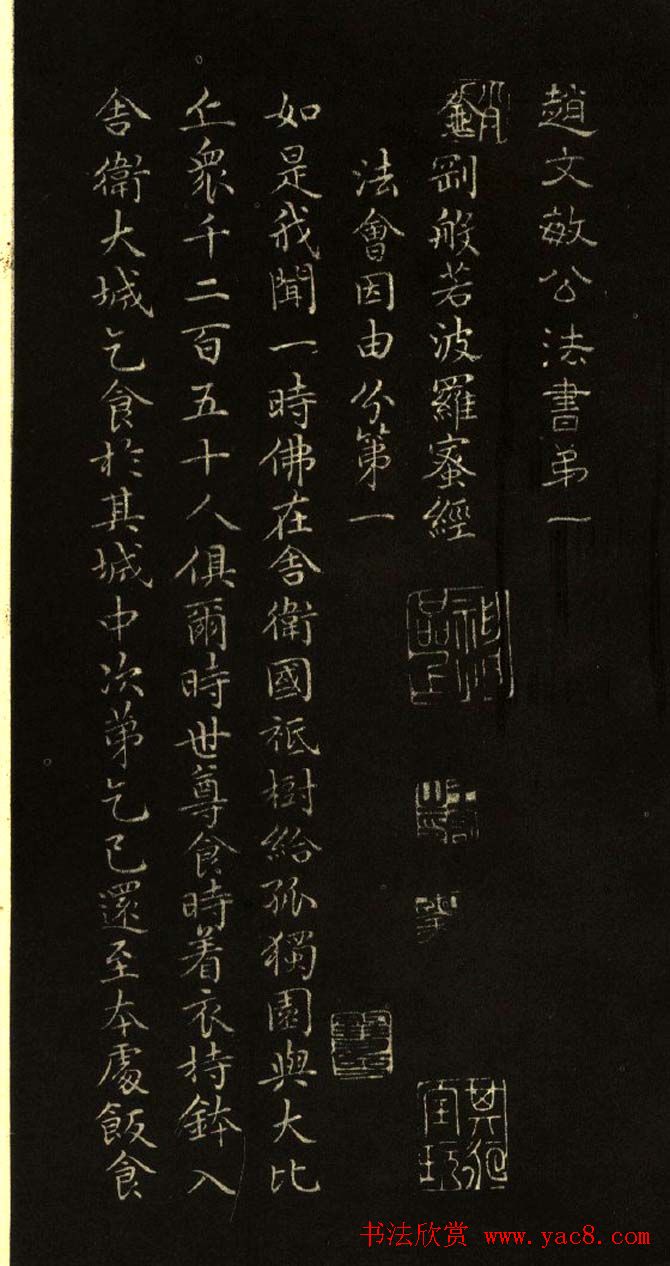 趙文敏公法書弟一
金剛般若波羅蜜經
法會因由分第一
如是我聞一時佛在舎衛國祇樹給孤獨園與大比
丘衆千二百五十人俱爾時世尊食時着衣持鉢入
舎衛大城乞食於其城中次第乞已還至本處飯食
书法欣赏 www.yac8.com